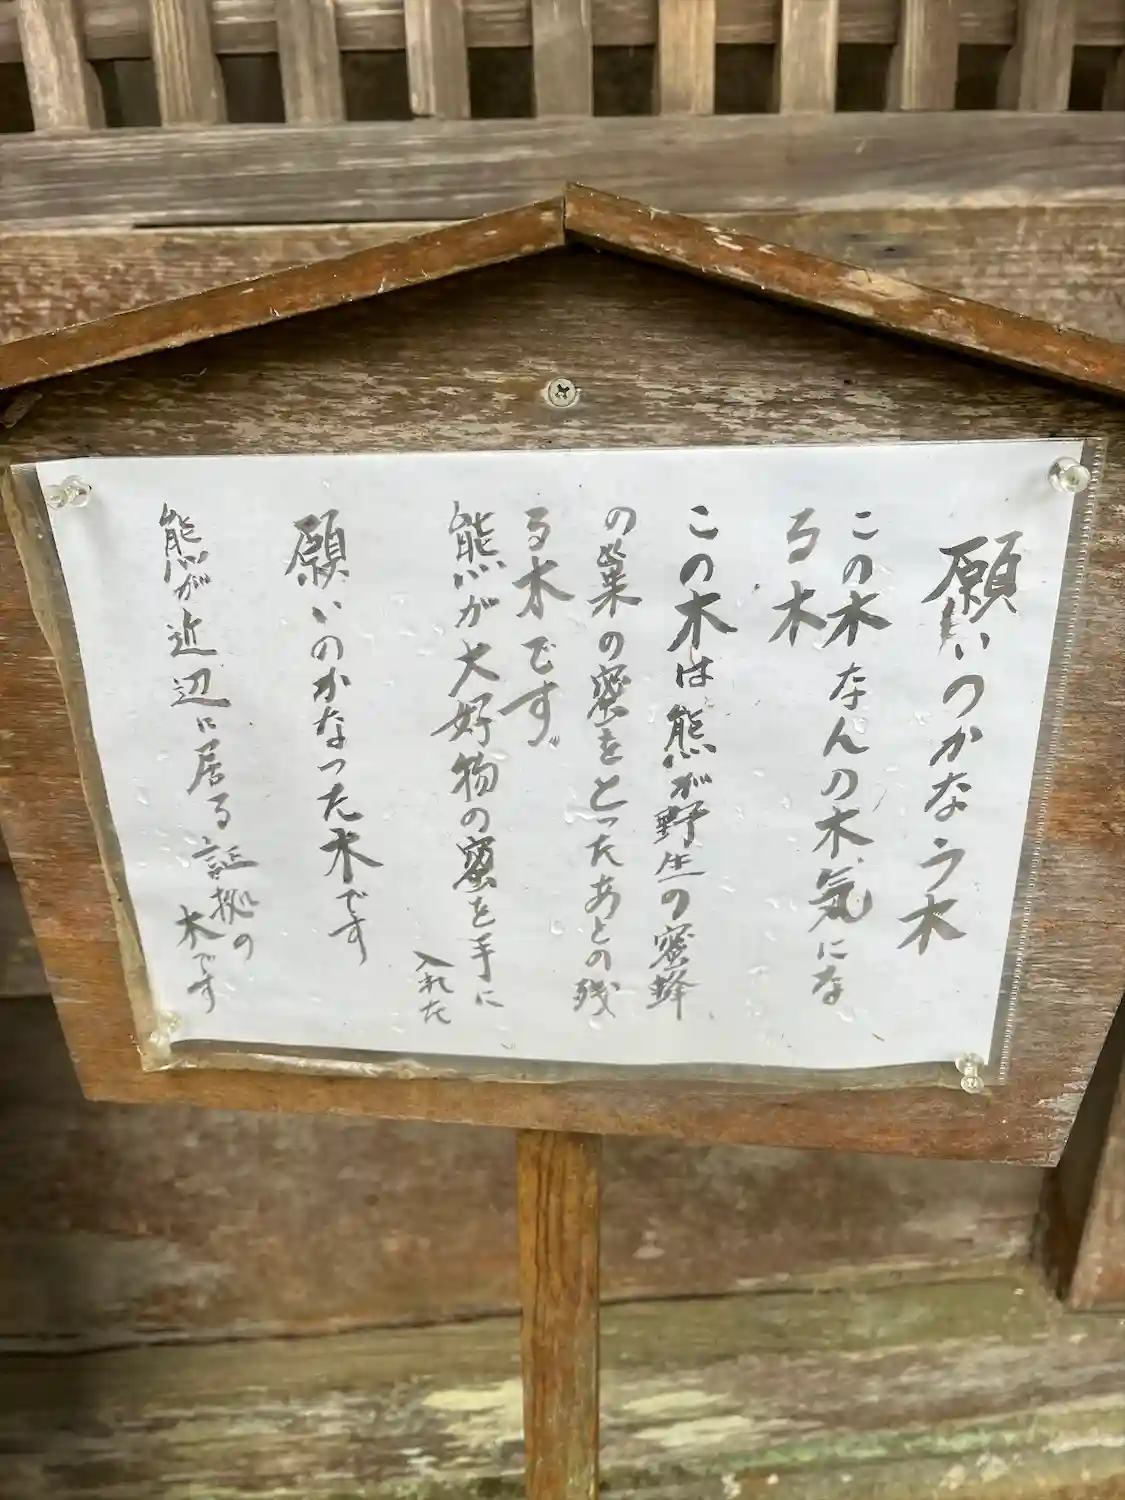 願いのかなう木
この木なんの木気にな
る木
この木は熊が野生の蜜蜂
の巣の蜜をとったあとの残
る木です。
熊が大好物の蜜を手に
入れた
願いのかなった木です
熊が近辺に居る証拠の
木です